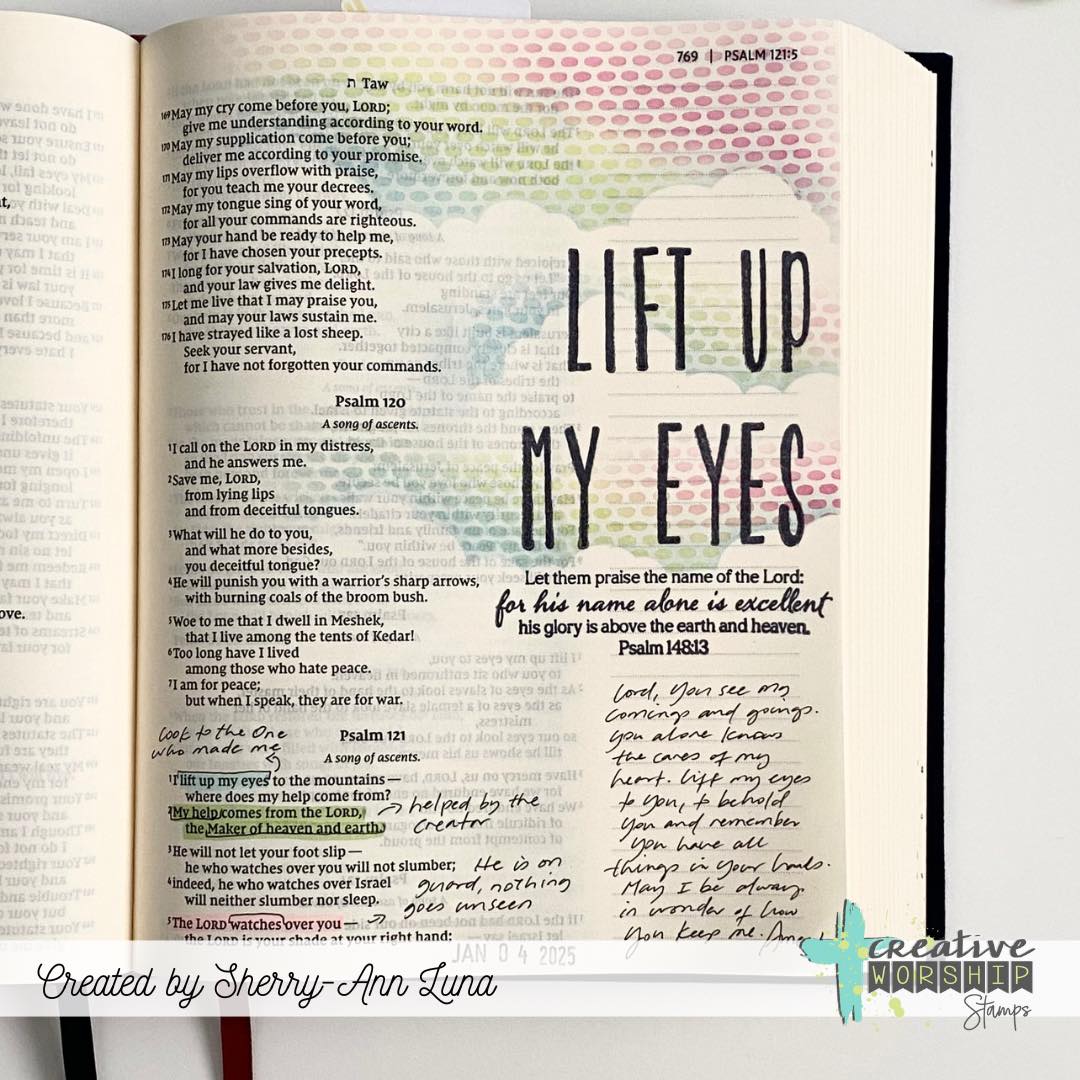 769 | PSALM 121:5
ת Taw
169 May my cry come before you, LORD;
give me understanding according to your word.
170 May my supplication come before you;
deliver me according to your promise.
171 May my lips overflow with praise,
for you teach me your decrees.
172 May my tongue sing of your word,
for all your commands are righteous.
173 May your hand be ready to help me,
for I have chosen your precepts.
174 I long for your salvation, LORD,
and your law gives me delight.
175 Let me live that I may praise you,
and may your laws sustain me.
176 I have strayed like a lost sheep.
Seek your servant,
for I have not forgotten your commands.
Psalm 120
A song of ascents.
1 I call on the LORD in my distress,
and he answers me.
2 Save me, LORD,
from lying lips
and from deceitful tongues.
3 What will he do to you,
and what more besides,
you deceitful tongue?
4 He will punish you with a warrior's sharp arrows,
with burning coals of the broom bush.
5 Woe to me that I dwell in Meshek,
that I live among the tents of Kedar!
6 Too long have I lived
among those who hate peace.
7 I am for peace;
but when I speak, they are for war.
look to the One
who made me
Psalm 121
A song of ascents.
1 I lift up my eyes to the mountains —
where does my help come from?
2 My help comes from the LORD,
the Maker of heaven and earth.
helped by the
creator
3 He will not let your foot slip —
he who watches over you will not slumber;
4 indeed, he who watches over Israel
will neither slumber nor sleep.
He is on
guard, nothing
goes unseen
5 The LORD watches over you —
the LORD is your shade at your right hand;
LIFT UP
MY EYES
Let them praise the name of the Lord:
for his name alone is excellent
his glory is above the earth and heaven.
Psalm 148:13
Lord, you see my
comings and goings.
you alone know
the cares of my
heart. Lift my eyes
to you, to behold
you and remember
you have all
things in your hands.
May I be always
in wonder of how
you keep me. Amen
JAN 04 2025
Created by Sherry-Ann Luna
creative
WORSHIP
Stamps